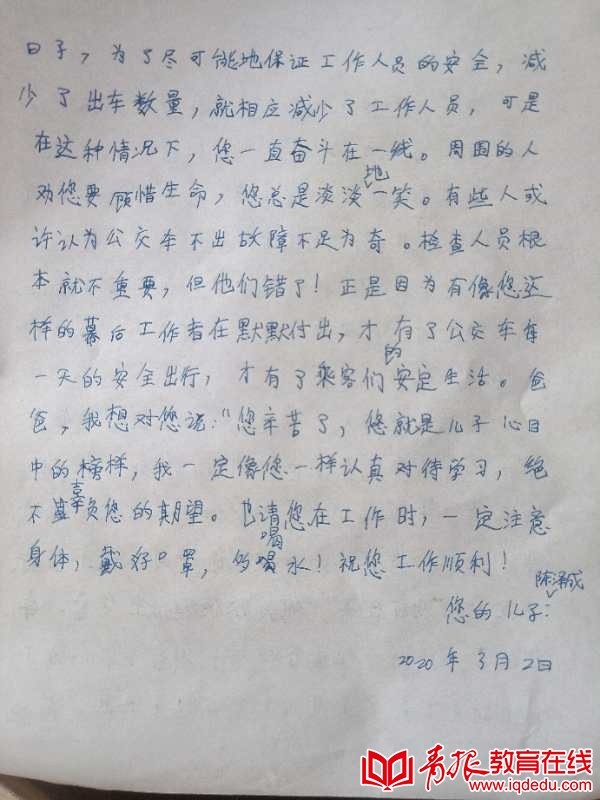 日子，为了尽可能地保证工作人员的安全，减
少了出车数量，就相应减少了工作人员，可是
在这种情况下，您一直奋斗在一线。周围的人
劝您要顾惜生命，您总是淡淡地一笑。有些人或
许认为公交车不出故障不足为奇。检查人员根
本就不重要，但他们错了！正是因为有像您这
样的幕后工作者在默默付出，才有了公交车每
一天的安全出行，才有了乘客们的安定生活。爸
爸，我想对您说："您辛苦了，您就是儿子心目
中的榜样，我一定像您一样认真对待学习，绝
不辜负您的期望。也请您在工作时，一定注意
身体，戴好口罩，多喝水！祝您工作顺利！
您的儿子：陈泽成
2020年3月2日
青报教育在线
www.iqdedu.com